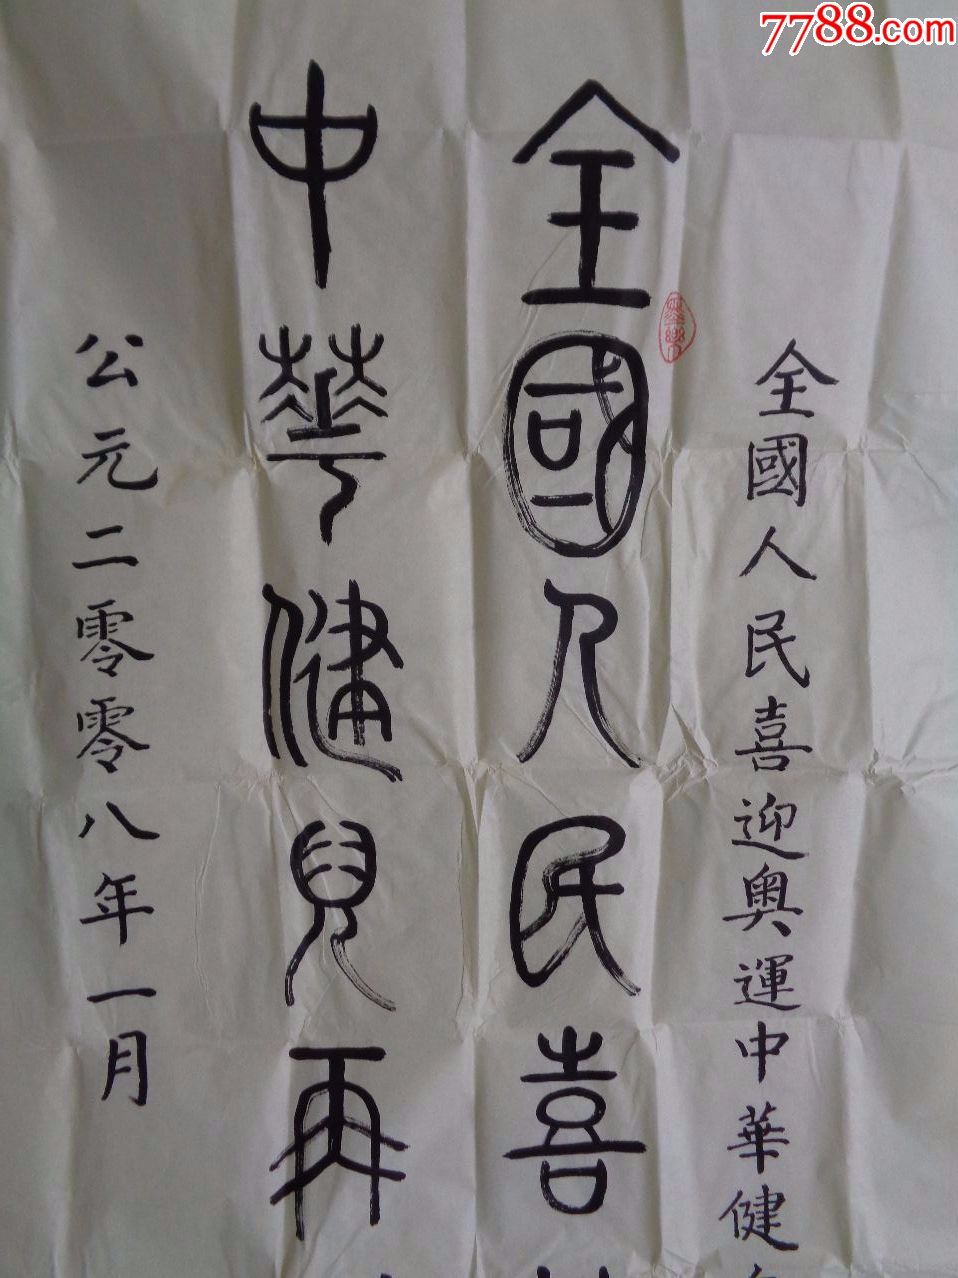 7788.com
全國人民喜迎奧運中華健
全國人民喜
中華健兒再
公元二零零八年一月